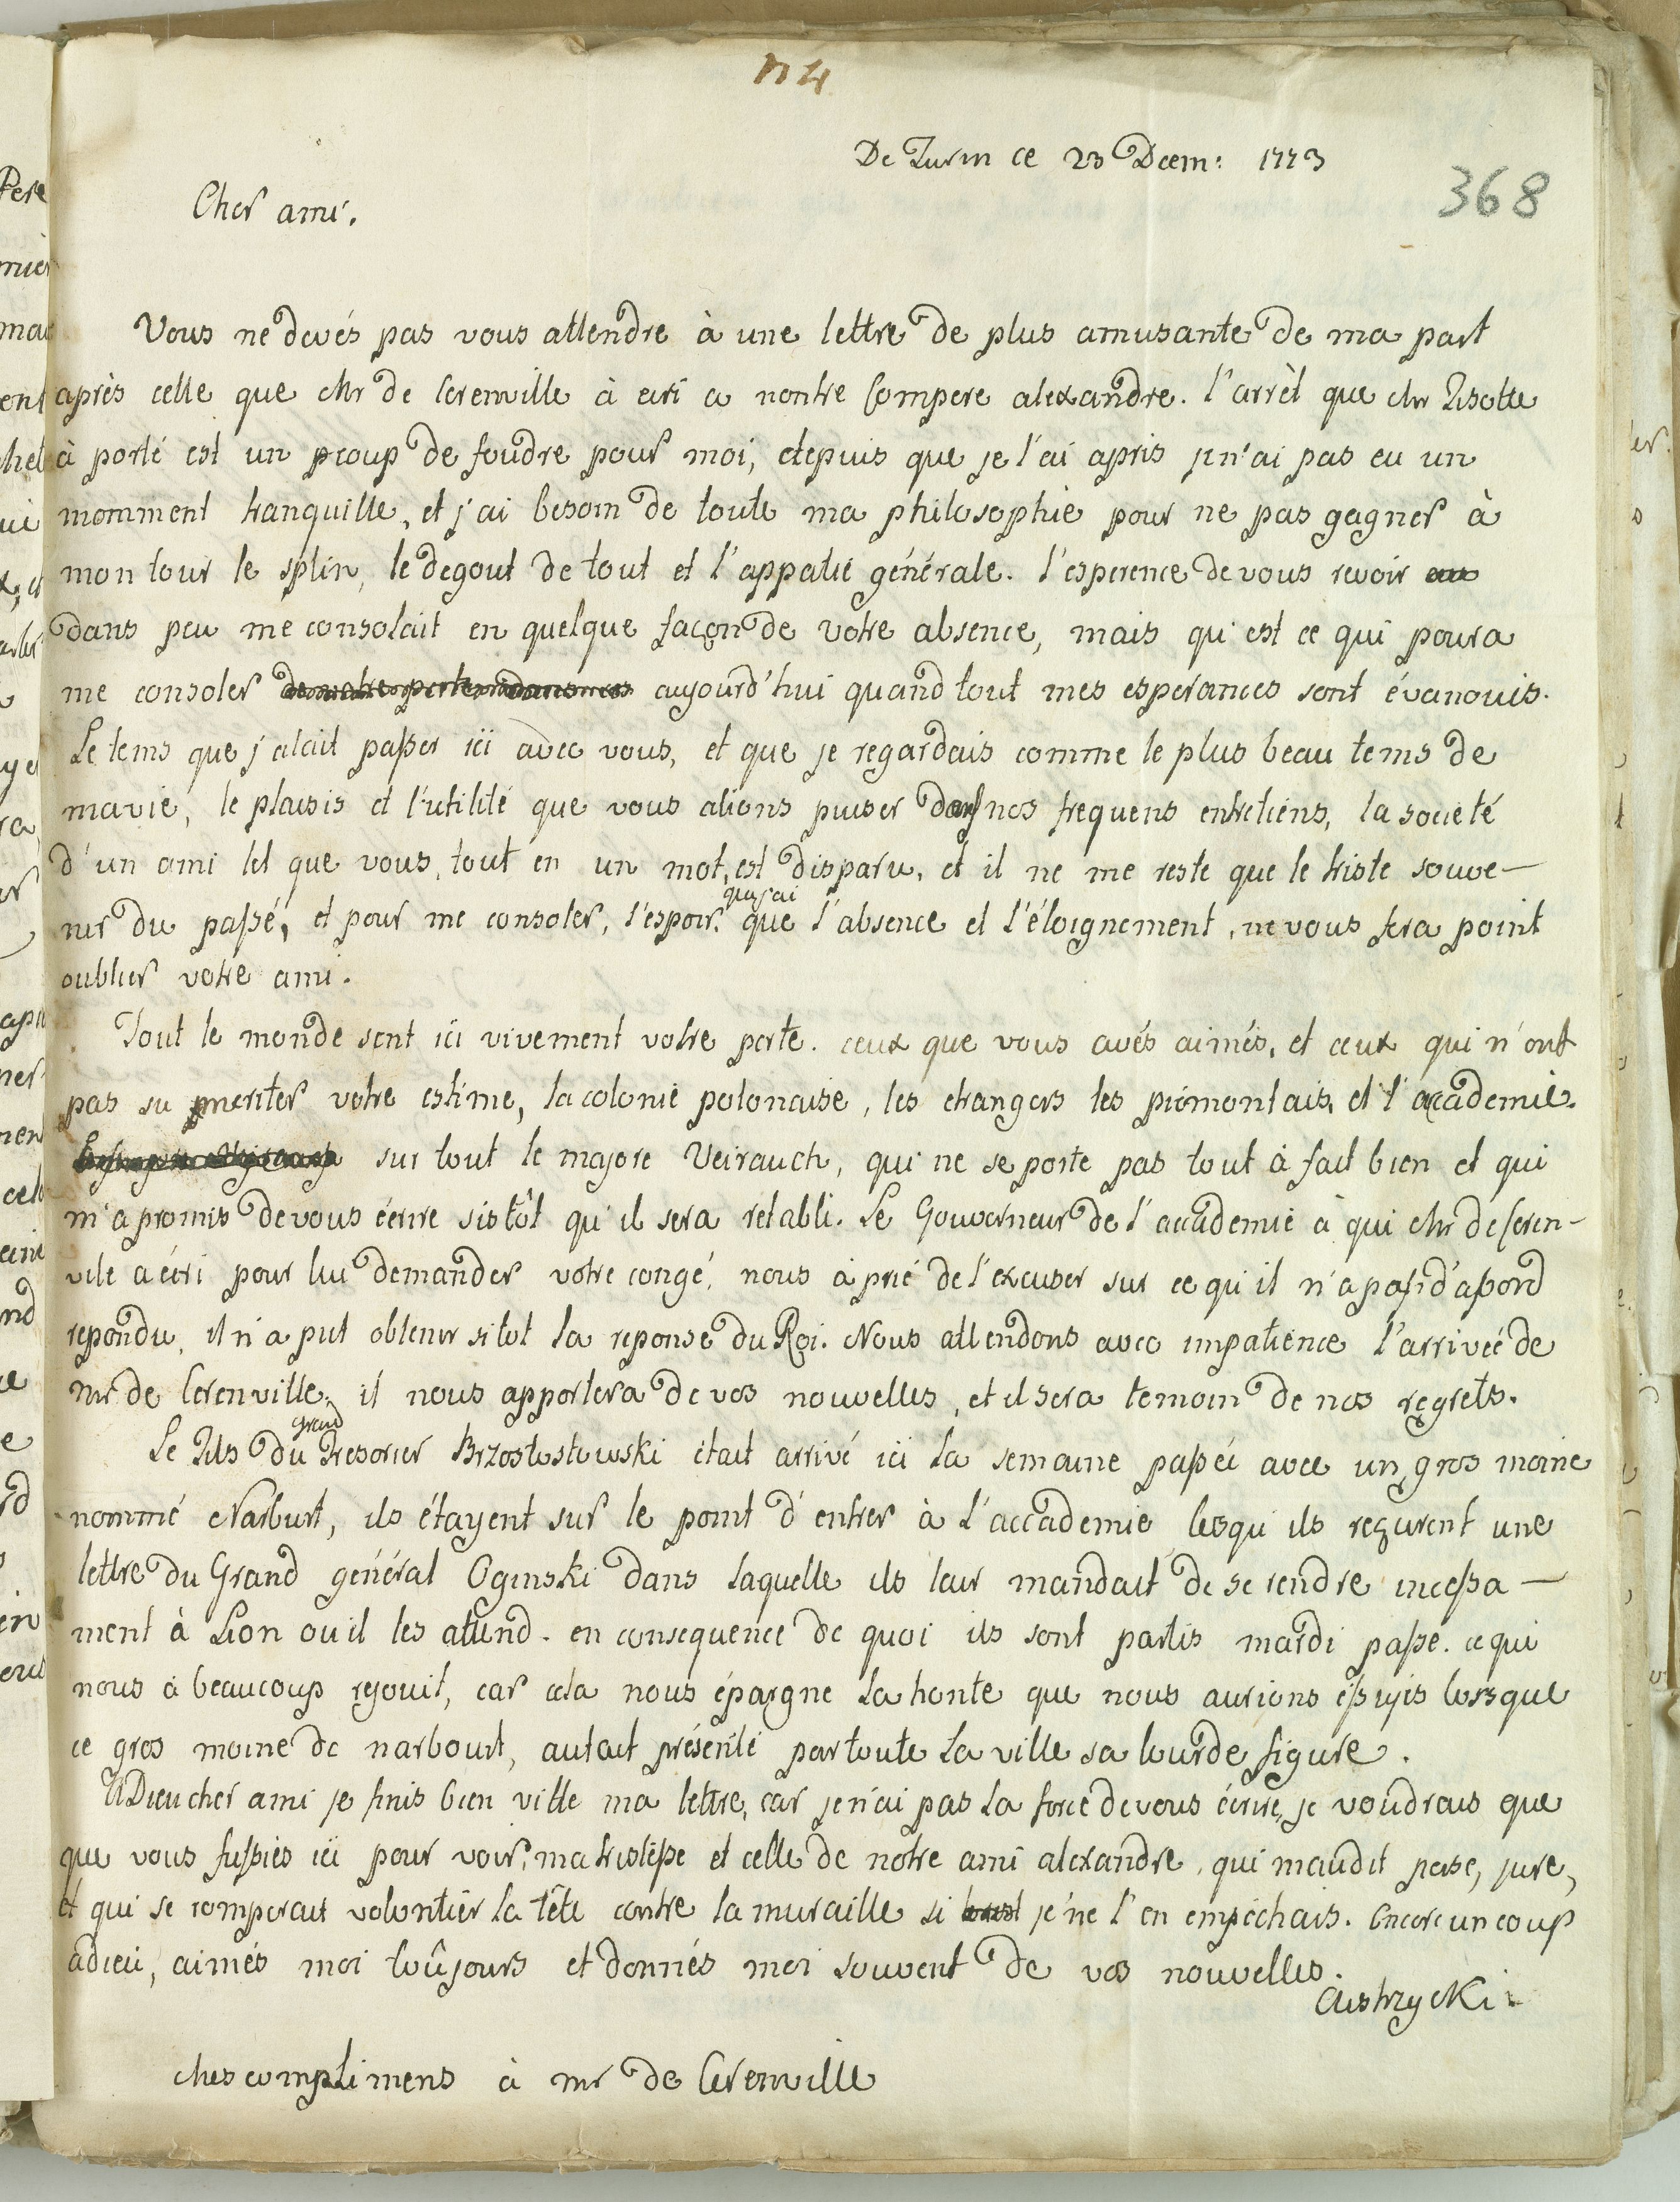 n 4
De Turin ce 23 Decem: 1773
368
Cher ami.
Vous ne devés pas vous attendre à une lettre de plus amusante de ma part
après celle que Mr de Cerenville à ecri a nontre Compere alexandre. l'arrèt que Mr Tissotte
à porté est un coup de foudre pour moi, depuis que je l'ai apris je n'ai pas eu un
momment tranquille, et j'ai besoin de toute ma philosophie pour ne pas gagner à
mon tour le splin, le degout de tout et l'appatie générale. l'esperence de vous revoir
dans peu me consolait en quelque façon de votre absence, mais qui est ce qui poura
me consoler aujourd'hui quand tout mes esperances sont évanouis.
Le tems que j'alait passer ici avec vous, et que je regardais comme le plus beau tems de
ma vie, le plaisis et l'utilité que vous alions puiser dans nos frequens entretiens, la societé
d'un ami tel que vous, tout en un mot, est disparu, et il ne me reste que le triste souve-
nir du passé, et pour me consoler, l'espoir, que j'ai que l'absence et l'éloignement, ne vous fera point
oublier votre ami.
Tout le monde sent ici vivement votre perte. ceux que vous avés aimés, et ceux qui n'ont
pas su meriter votre estime, la colonie polonaise, les etrangers les piémontais, et l'academie.
sur tout le majore Veirauch, qui ne se porte pas tout à fait bien et qui
m'a promis de vous écrire sistôt qu'il sera retabli. Le Gouverneur de l'accademie à qui Mr de Ceren-
vile a écri pour lui demander votre congé, nous à prié de l'excuser sur ce qu'il n'a pas d'abord
repondu, il n'a put obtenir sitot la reponse du Roi. Nous attendons avec impatience l'arrivée de
Mr de Cerenville, il nous apportera de vos nouvelles, et il sera temoin de nos regrets.
Le Fils du grand Tresorier Brzostostowski était arrivé ici la semaine passée avec un gros moine
nommé Narbutt, ils étayent sur le point d'entrer à l'accademie lesqu'ils reçurent une
lettre du Grand général Oginski dans laquelle ils leur mandait de se rendre incessa-
ment à Lion ou il les attend. en consequence de quoi ils sont partis mardi passe. ce qui
nous à beaucoup rejouit, car cela nous épargne la honte que nous aurions essuyés lorsque
ce gros moine de narboutt, autait présenté par toute la ville sa lourde figure.
Adieu cher ami je finis bien vitte ma lettre, car je n'ai pas la force de vous écrire, je voudrais que
que vous fussiés ici pour voir, ma tristesse et celle de notre ami alexandre, qui maudit peste, jure,
et qui se romperait volontiér la tête contre la muraille si je ne l'en empêchais. Encore un coup
adieu, aimés moi toûjours et donnés moi souvent de vos nouvelles.
Austrzycki.
Mes complimens à mr de Cerenville